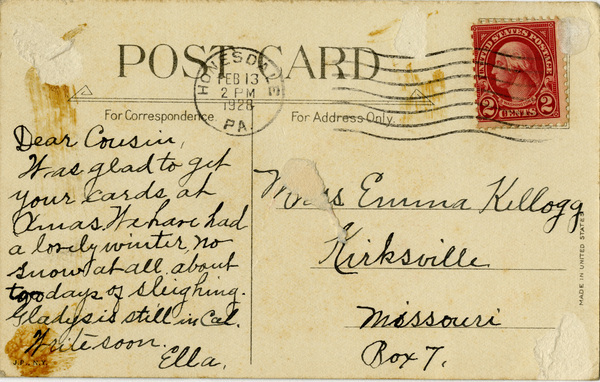 POST CARD
HONESDALE
FEB 13
2 PM
1928
PA.
UNITED STATES POSTAGE
2 CENTS 2
For Correspondence.
For Address Only.
Dear Cousin,
Was glad to get
your cards at
Xmas. We have had
a lovely winter, no
snow at all. about
two days of sleighing.
Gladys is still in Cal.
Write soon.
Ella.
Miss Emma Kellogg
Kirksville
Missouri
Box 7.
MADE IN UNITED STATES